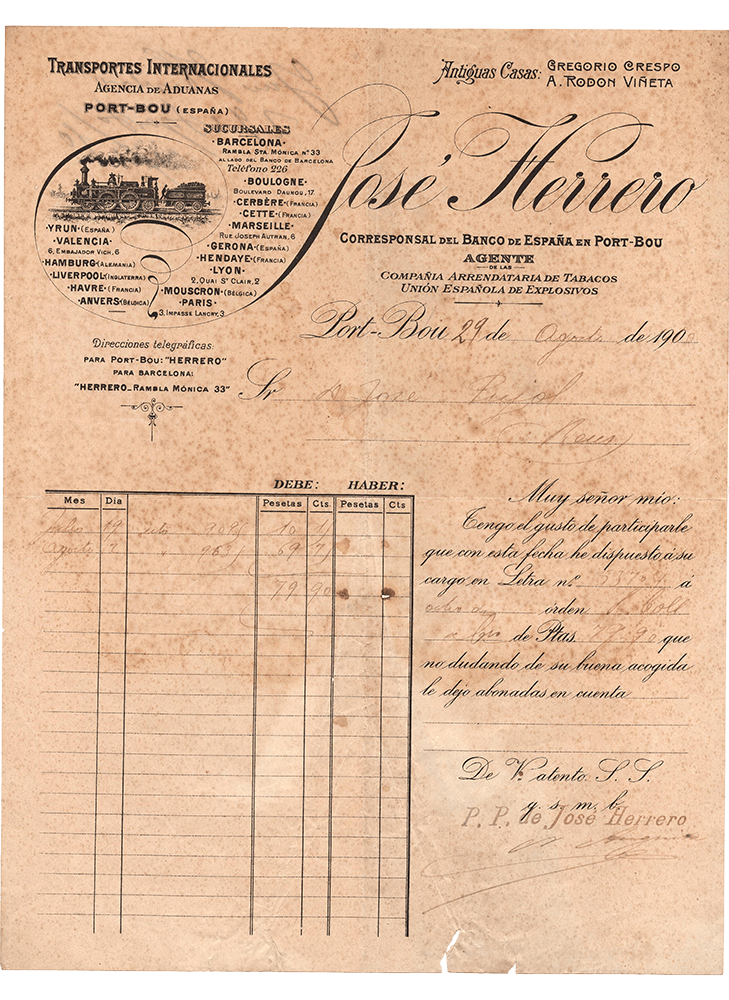 TRANSPORTES INTERNACIONALES
AGENCIA DE ADUANAS
PORT-BOU (ESPAÑA)
Antiguas Casas: GREGORIO CRESPO
A. RODON VIÑETA
SUCURSALES
·BARCELONA·
RAMBLA STA MÓNICA Nº 33
AL LADO DEL BANCO DE BARCELONA
Teléfono 226
·BOULOGNE·
BOULEVARD DAUNOU, 17
·CERBÈRE·(FRANCIA)
·CETTE·(FRANCIA)
·MARSEILLE·
RUE JOSEPH AUTRAN, 6
·GERONA·(ESPAÑA)
·HENDAYE·(FRANCIA)
·LYON·
2, QUAI ST CLAIR, 2
·MOUSCRON·(BÉLGICA)
·PARIS·
3, IMPASSE LANCRY, 3
·YRUN·(ESPAÑA)
·VALENCIA·
6, EMBAJADOR VICH, 6
·HAMBURG·(ALEMANIA)
·LIVERPOOL·(INGLATERRA)
·HAVRE·(FRANCIA)
·ANVERS·(BÉLGICA)
José Herrero
CORRESPONSAL DEL BANCO DE ESPAÑA EN PORT-BOU
AGENTE
DE LAS
COMPAÑIA ARRENDATARIA DE TABACOS
UNIÓN ESPAÑOLA DE EXPLOSIVOS
Port-Bou 29 de Agosto de 1900
Direcciones telegráficas:
PARA PORT-BOU: "HERRERO"
PARA BARCELONA:
"HERRERO-RAMBLA MÓNICA 33"
Sr D. José Pujol
Reus
DEBE: HABER:
Mes Dia Pesetas Cts. Pesetas Cts
19 10
Agosto 69
79 90
Muy señor mio:
Tengo el gusto de participarle
que con esta fecha he dispuesto á su
cargo en Letra nº á
orden
de Ptas. 79.90 que
no dudando de su buena acogida
le dejo abonadas en cuenta
De V. atento S. S.
q. s. m. b.
P. P. de José Herrero